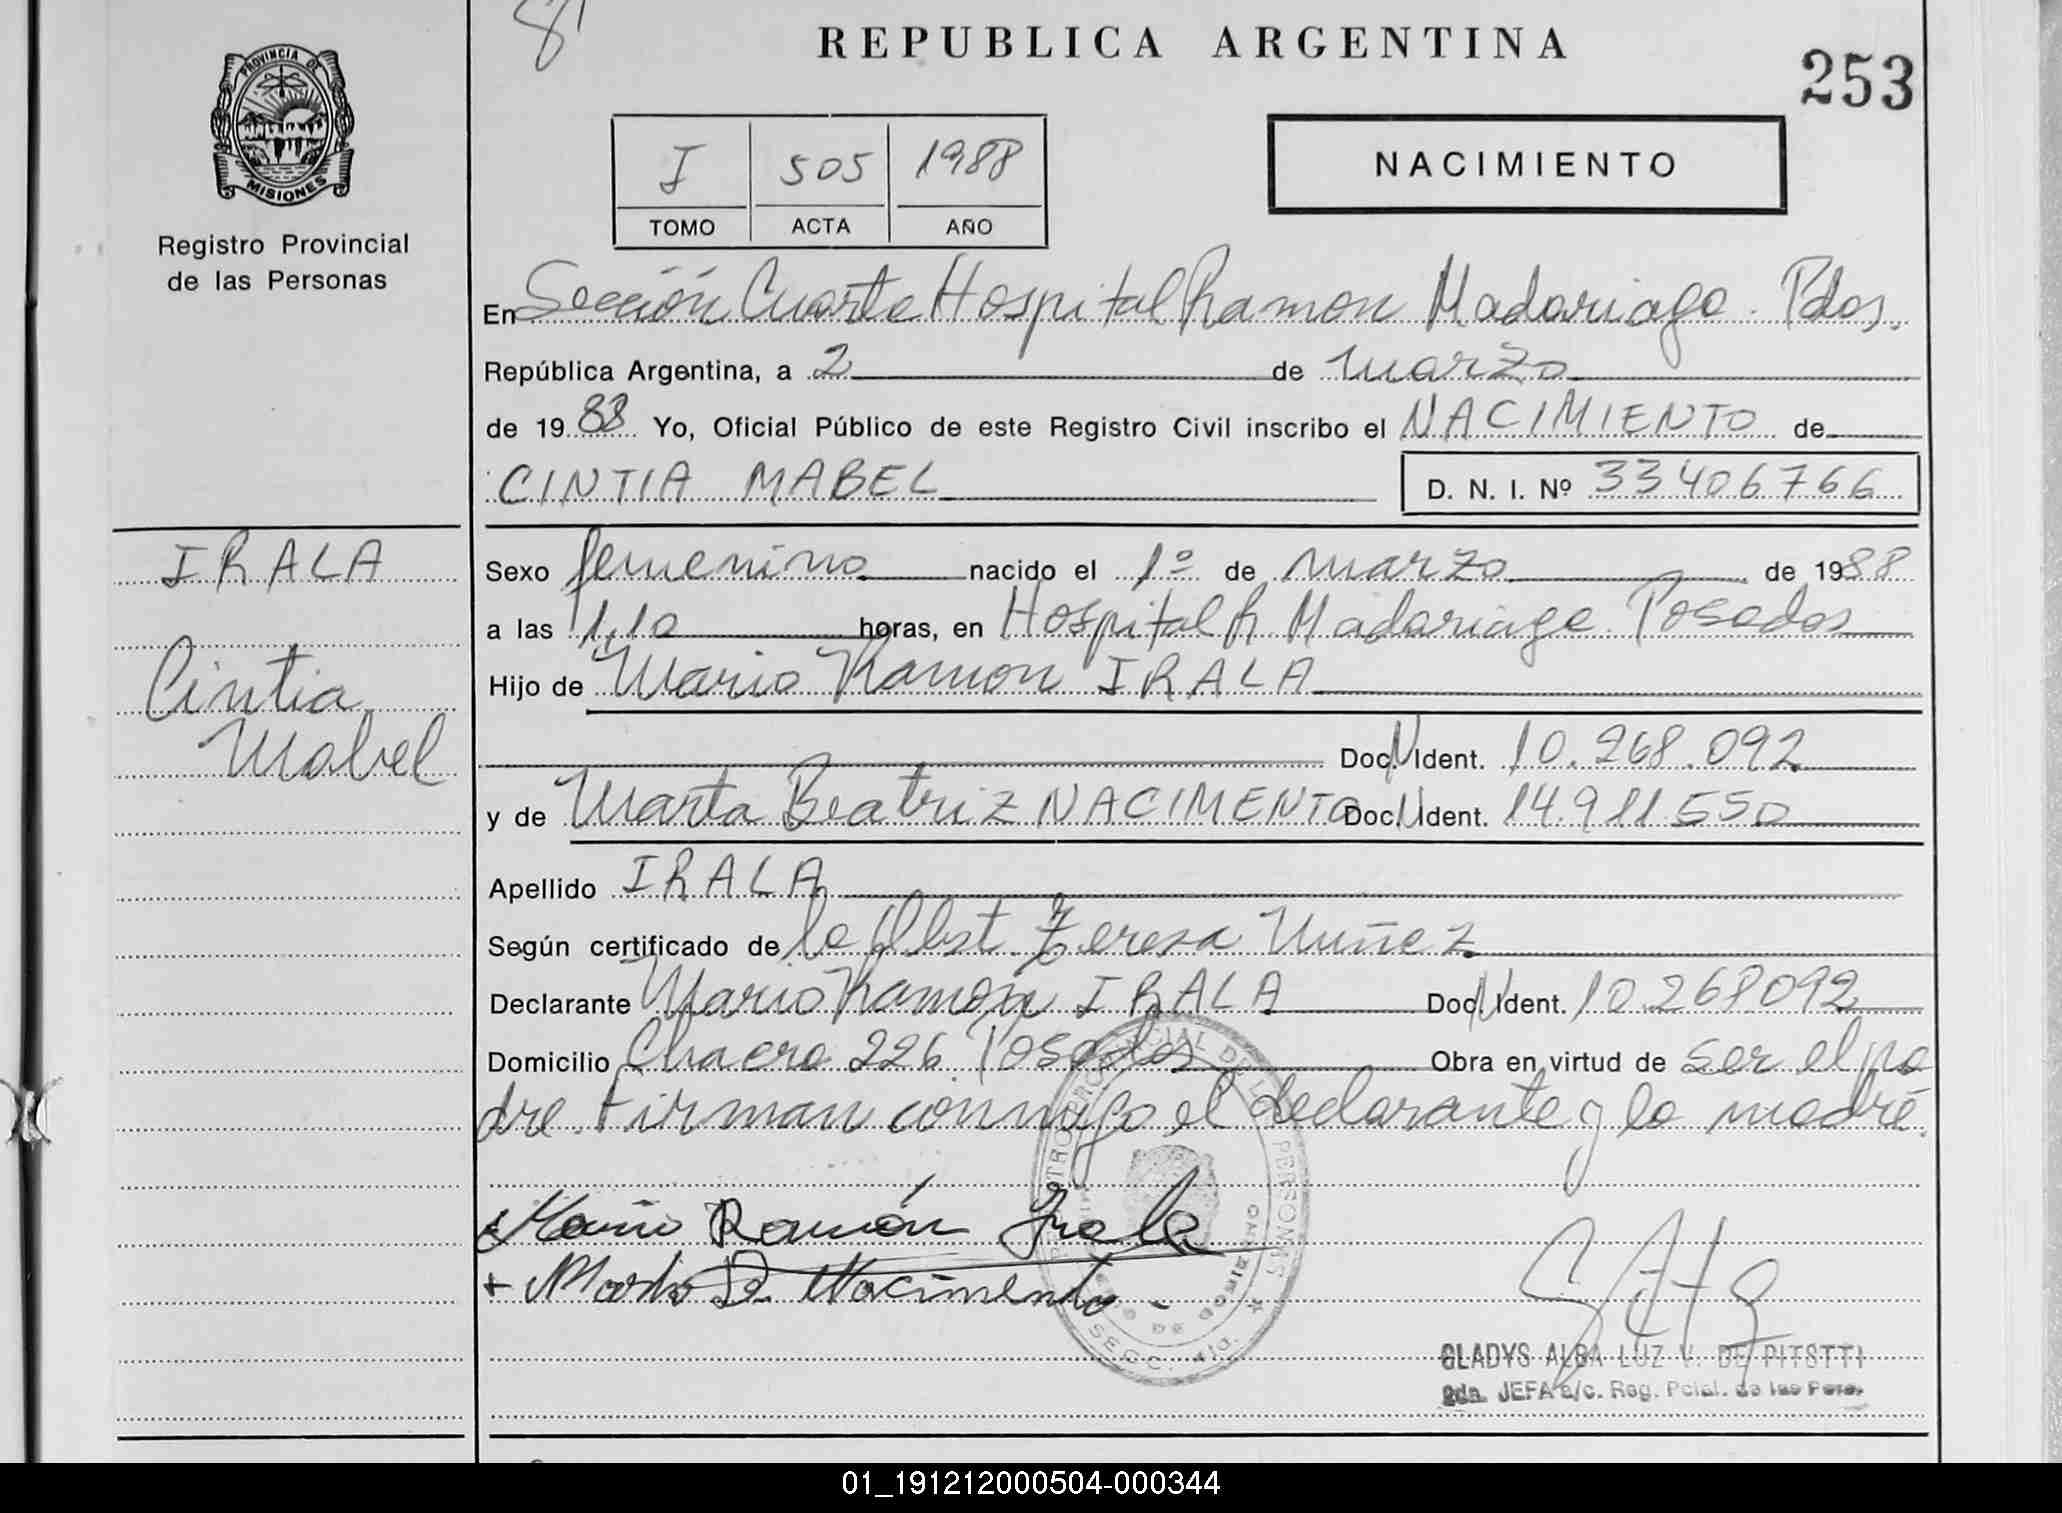 REPUBLICA ARGENTINA
253
PROVINCIA DE
MISIONES
Registro Provincial
de las Personas
I 505 1988
TOMO ACTA AÑO
NACIMIENTO
En Sección Cuarta Hospital Ramon Madariaga. Pdas.
República Argentina, a 2 de marzo
de 1988 Yo, Oficial Público de este Registro Civil inscribo el NACIMIENTO de
CINTIA MABEL
D. N. I. Nº 33406766
IRALA
Cintia
Mabel
Sexo femenino nacido el 1º de marzo de 1988
a las 1,10 horas, en Hospital R. Madariaga. Posadas
Hijo de Mario Ramon IRALA
Doc. N. Ident. 10.268.092
y de Marta Beatriz NACIMENTO Doc. N. Ident. 14.911.550
Apellido IRALA
Según certificado de la Obst. Teresa Nuñez
Declarante Mario Ramón IRALA Doc. N. Ident. 10.268092
Domicilio Chacra 226. Posadas Obra en virtud de ser el pa
dre. Firman conmigo el declarante y la madre.
Mario Ramón Irala
+ Marta B. Nacimento
PROVINCIAL DE LAS PERSONAS
SECC. 4ta.
GLADYS ALBA LUZ V. DE
JEFA a/c. Reg. Pcial. de las Pers.
01_191212000504-000344